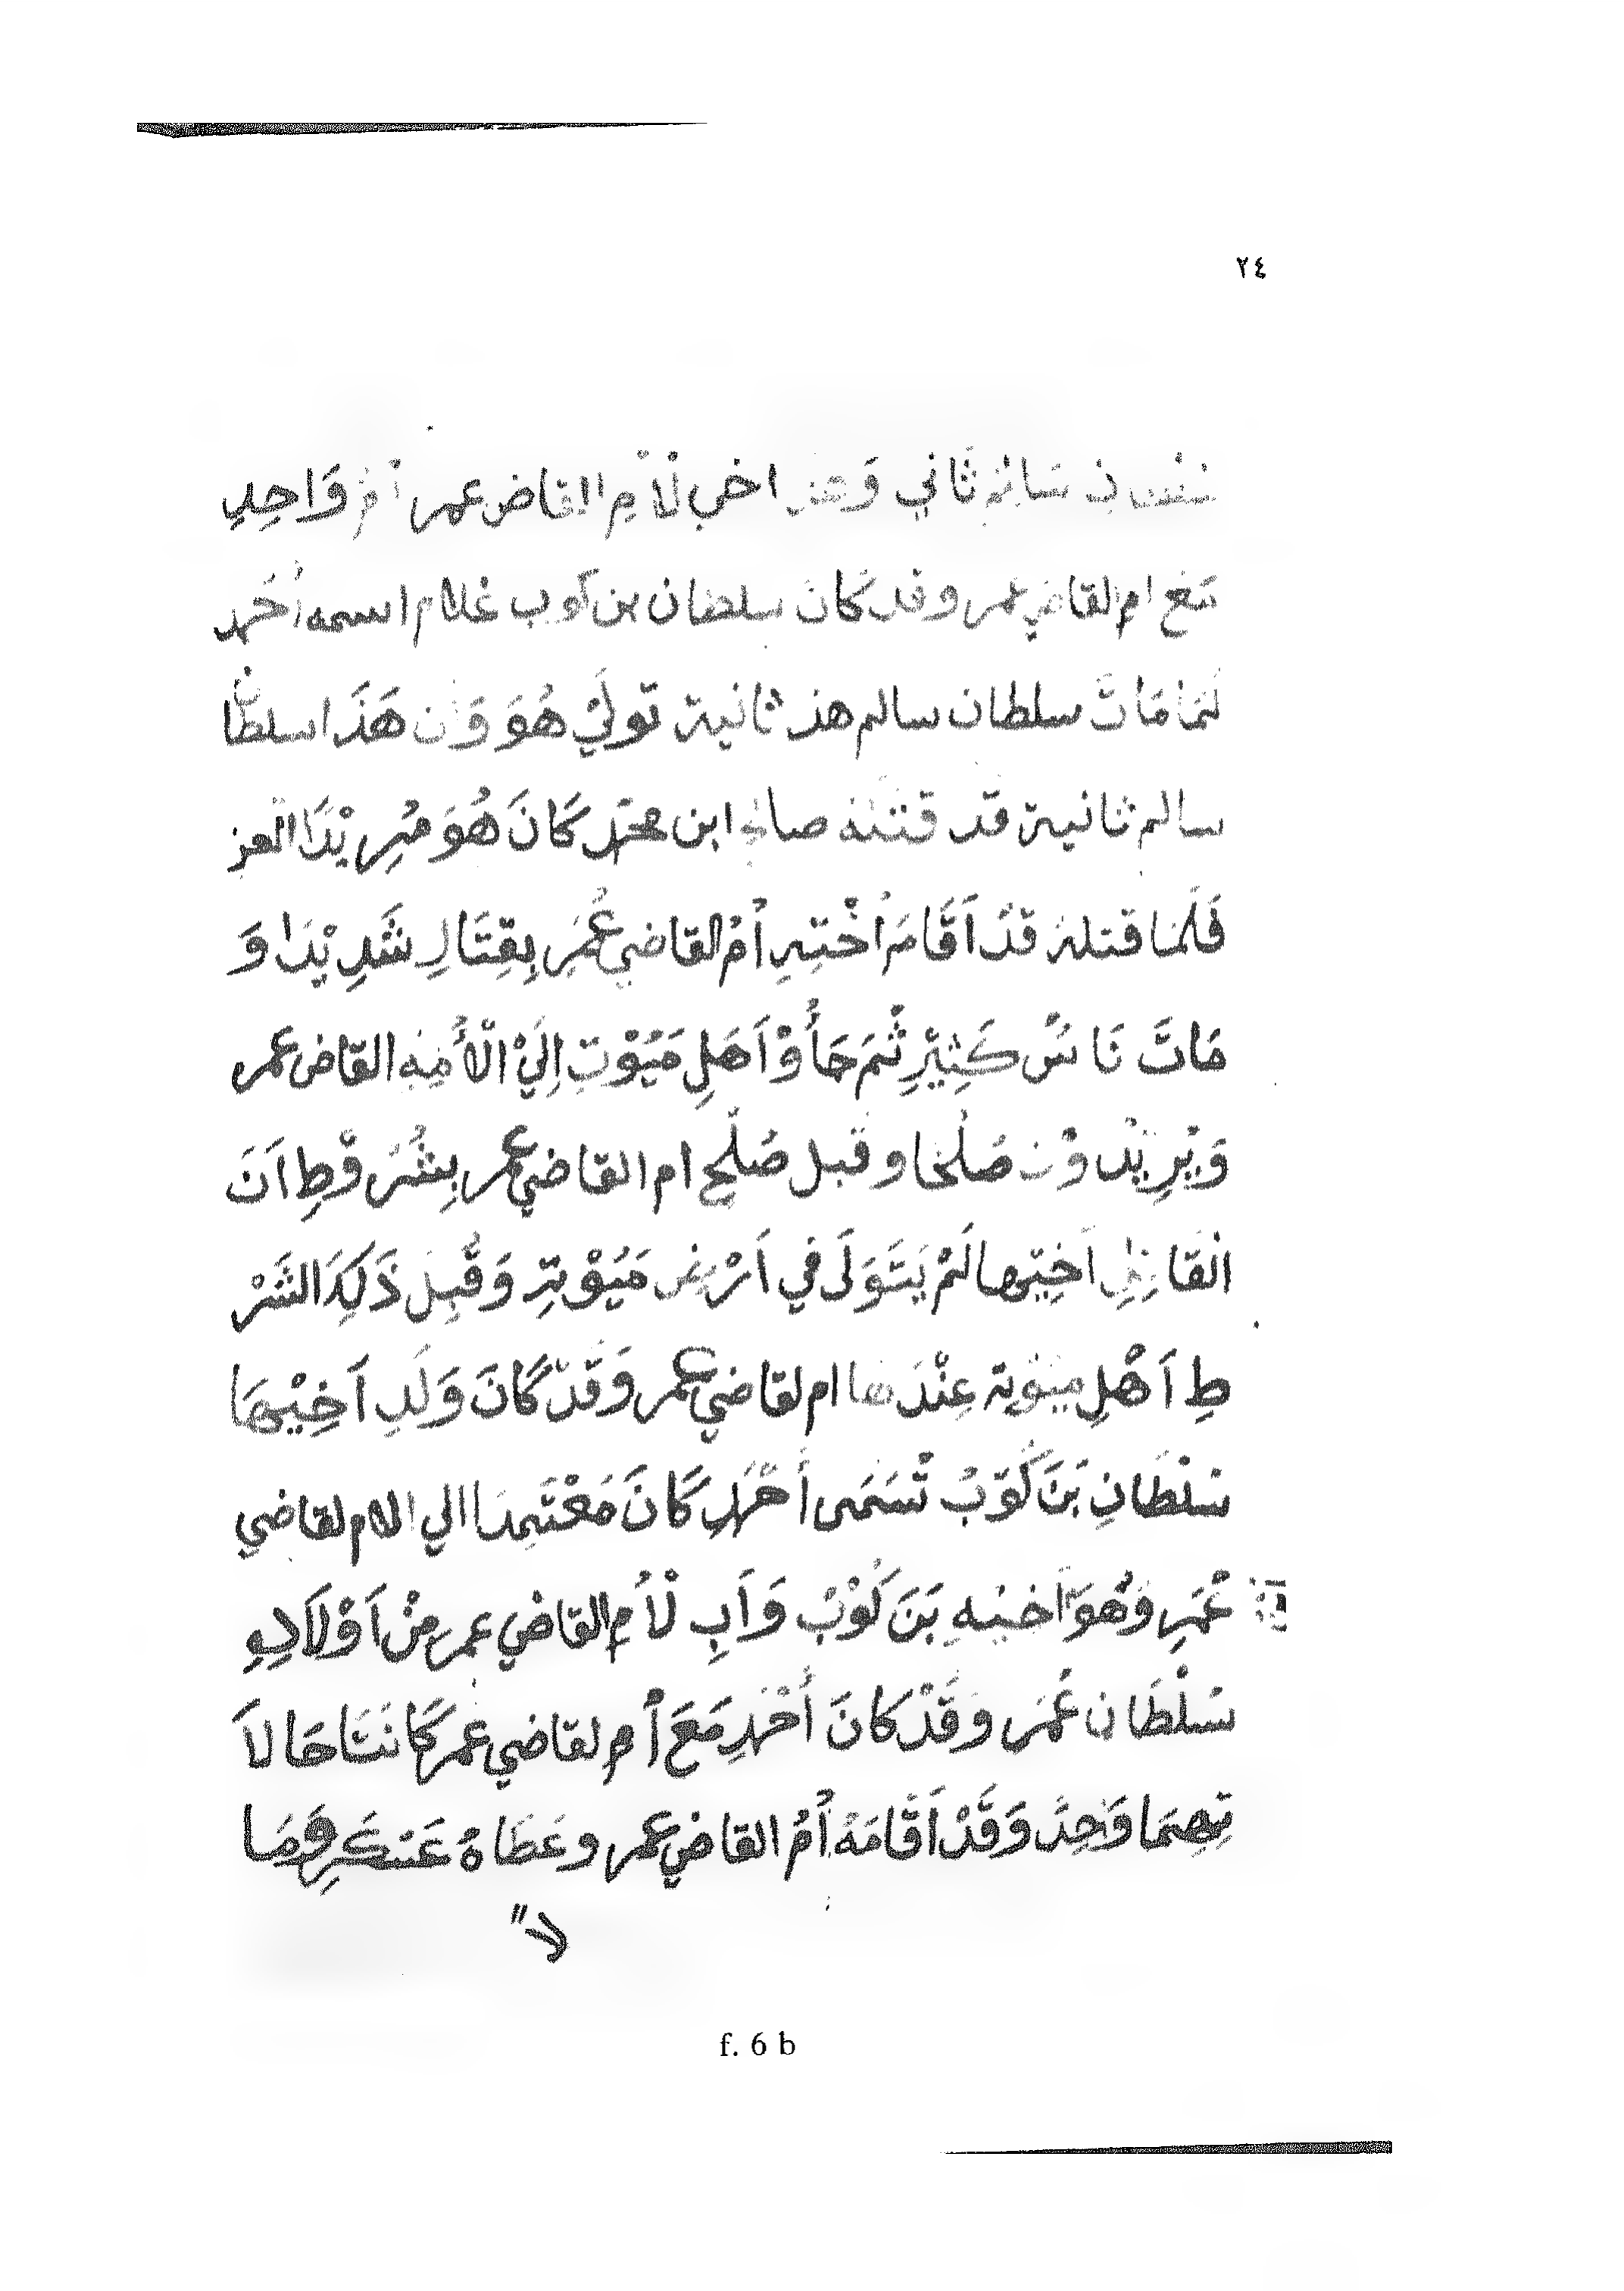 ٢٤
سلطان سالم ثاني وَهذا اخي لْأُمِ القاضي عمر أمّ وَاحِدٍ
مَعَ ام القاضي عمر وقد كَانَ سلطان بن كوب غلام اسمه أحمد
لَمَا مَاتَ سلطان سالم هذ ثانية تولّيْ هُوَ وَان هَذَا سلطَانْ
سالم ثانية قد قتلهُ صالح ابن محمّد كَانَ هُوَ مُرِيْدًا العز
فَلَمَا قتلهُ قدْ اَقَامَ اُخْتِهِ اُمُ القاضي عُمَرِ بِقِتَالِ شَدِيْدَا وَ
مَاتَ نَاسٌ كَثِيْرِ ثُمَ جَأُوْ اَهَلِ مَيُوْتِ اِلَيْ الْأُمِهِ القاض عمر
وَيُرِيْدُوْن صُلْحَا وقبل صُلْحِ ام القاضي عمر بِشُرُوْطِ اَنَ
القَاضِي اَخِتِها لَمْ يَتَوَلَى في اَرْضِ مَيُوْتِ وَقَبِلَ ذَلِكَ الشَرْ
طِ اَهْلِ ميُوتِ عِنْدَ ها ام لقاضي عمر وَقَدْ كَانَ وَلَدِ اَخِيْهَا
سُلْطَانِ بَنَ كُوَبُ تُسَمَى أَحْمَدِ كَانَ مَعْتَمِدَا الي الام لقاضي
عُمَرِ وَهُوَ اَخيهِ بَنَ كُوْبُ وَاَبِ لْأُمِ القاضي عمر مْن اَوْلَادِهِ
سُلْطَان عُمَر وَقَدْ كَانَ أَحْمَدِ مَعَ اُمِ لقاضي عمر كَانَتَا حَالاَ
تِهِمَا وَحِدً وَقَدْ اَقَامَهُ اُمُ القاضي عمر وعَطَاهُ عَسْكَرِ وَمَا
لا"
f. 6 b